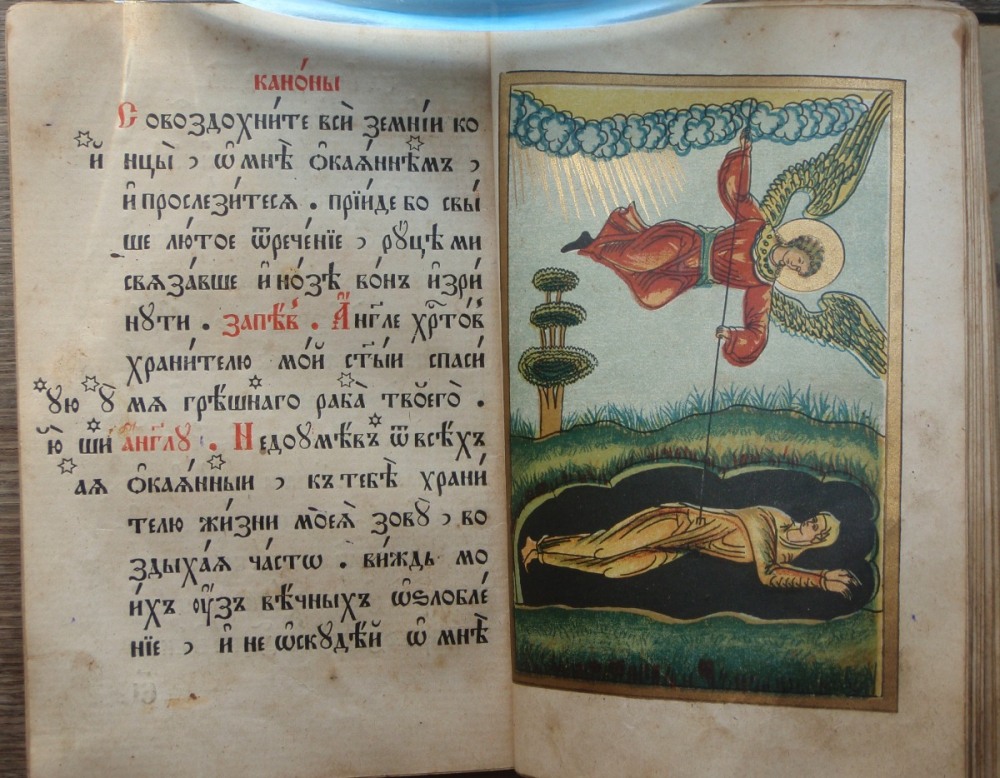 кано́ны
С овоздохни́те всѝ земні́и ко
й нцы̀ , ѡ҆ мнѣ̀ ѻ҆кая́ннѣмъ ,
и҆ прослези́тесѧ . прїи́де бо свы́
ше лю́тое ѿрече́нїе , ру́цѣ ми
свѧза́вше и҆ но́зѣ во́нъ и҆зри́
нꙋти . запѣ́в . А҆́нг҃ле хр҃то́в
храни́телю мо́й ст҃ы́и спаси́
ꙋю ꙋ̀ мѧ грѣ́шнаго раба̀ твоего̀ .
ю҆ ши а҆́нг҃лꙋ . Н едоꙋмѣ́въ ѿ всѣ́хъ
аѧ ѻ҆кая́нныи , къ тебѣ̀ храни́
телю жи́зни моеѧ̀ зовꙋ̀ , во
здыха́ѧ ча́стѡ . ви́ждь мо
и́хъ ᲂу҆́зъ вѣ́чныхъ ѡ҆ѕлобле́
нїе , и҆ не ѡ҆скꙋдѣ́й ѡ҆ мнѣ̀